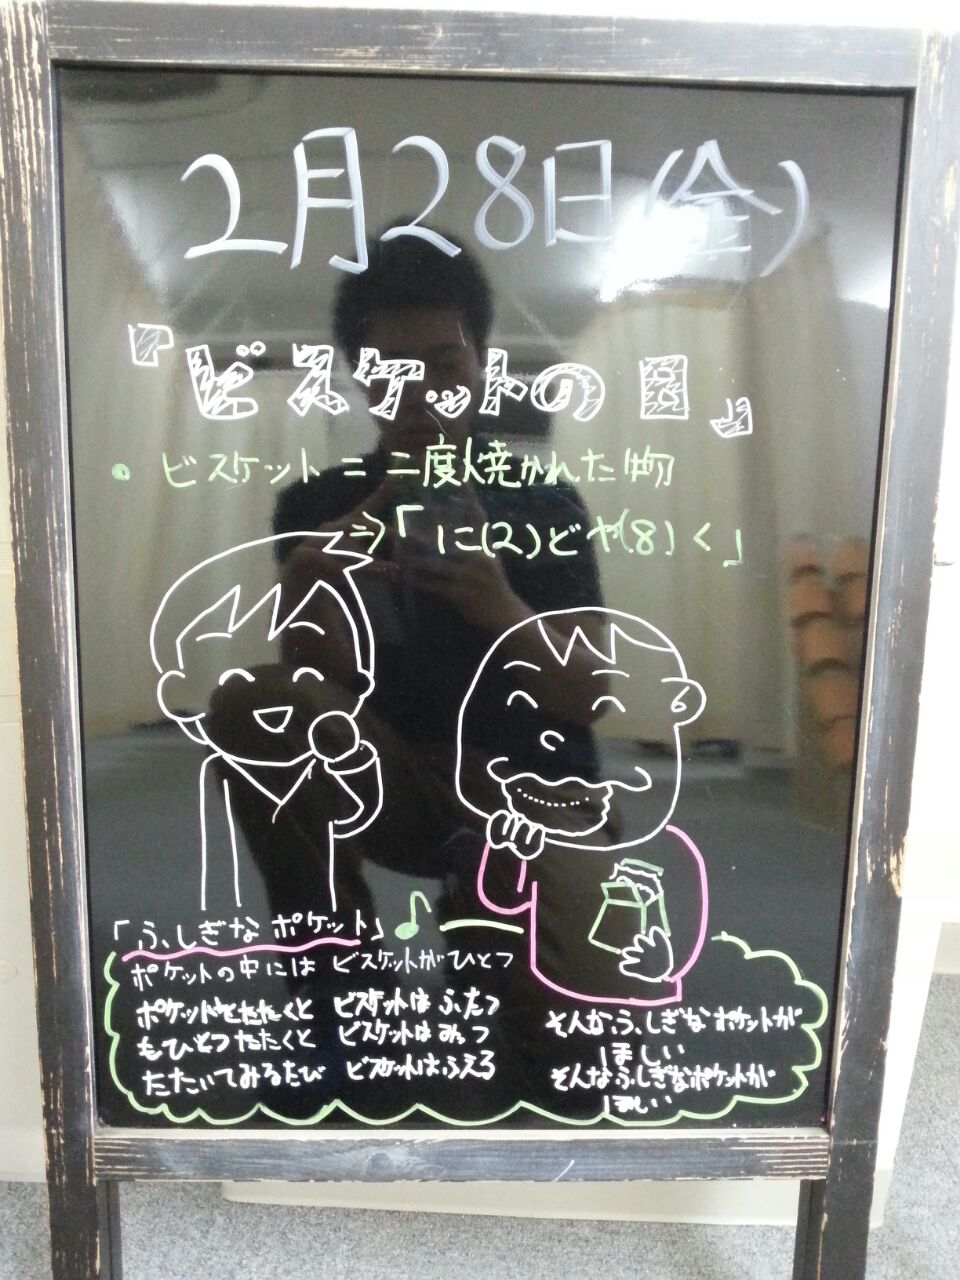 2月28日(金)
『ビスケットの日』
• ビスケット = 二度焼かれた物
⇒「に(2)どや(8)く」
「ふしぎなポケット」♪
ポケットの中には ビスケットがひとつ
ポケットをたたくと ビスケットはふたつ
もひとつたたくと ビスケットはみっつ
たたいてみるたび ビスケットはふえる
そんなふしぎなポケットが
ほしい
そんなふしぎなポケットが
ほしい